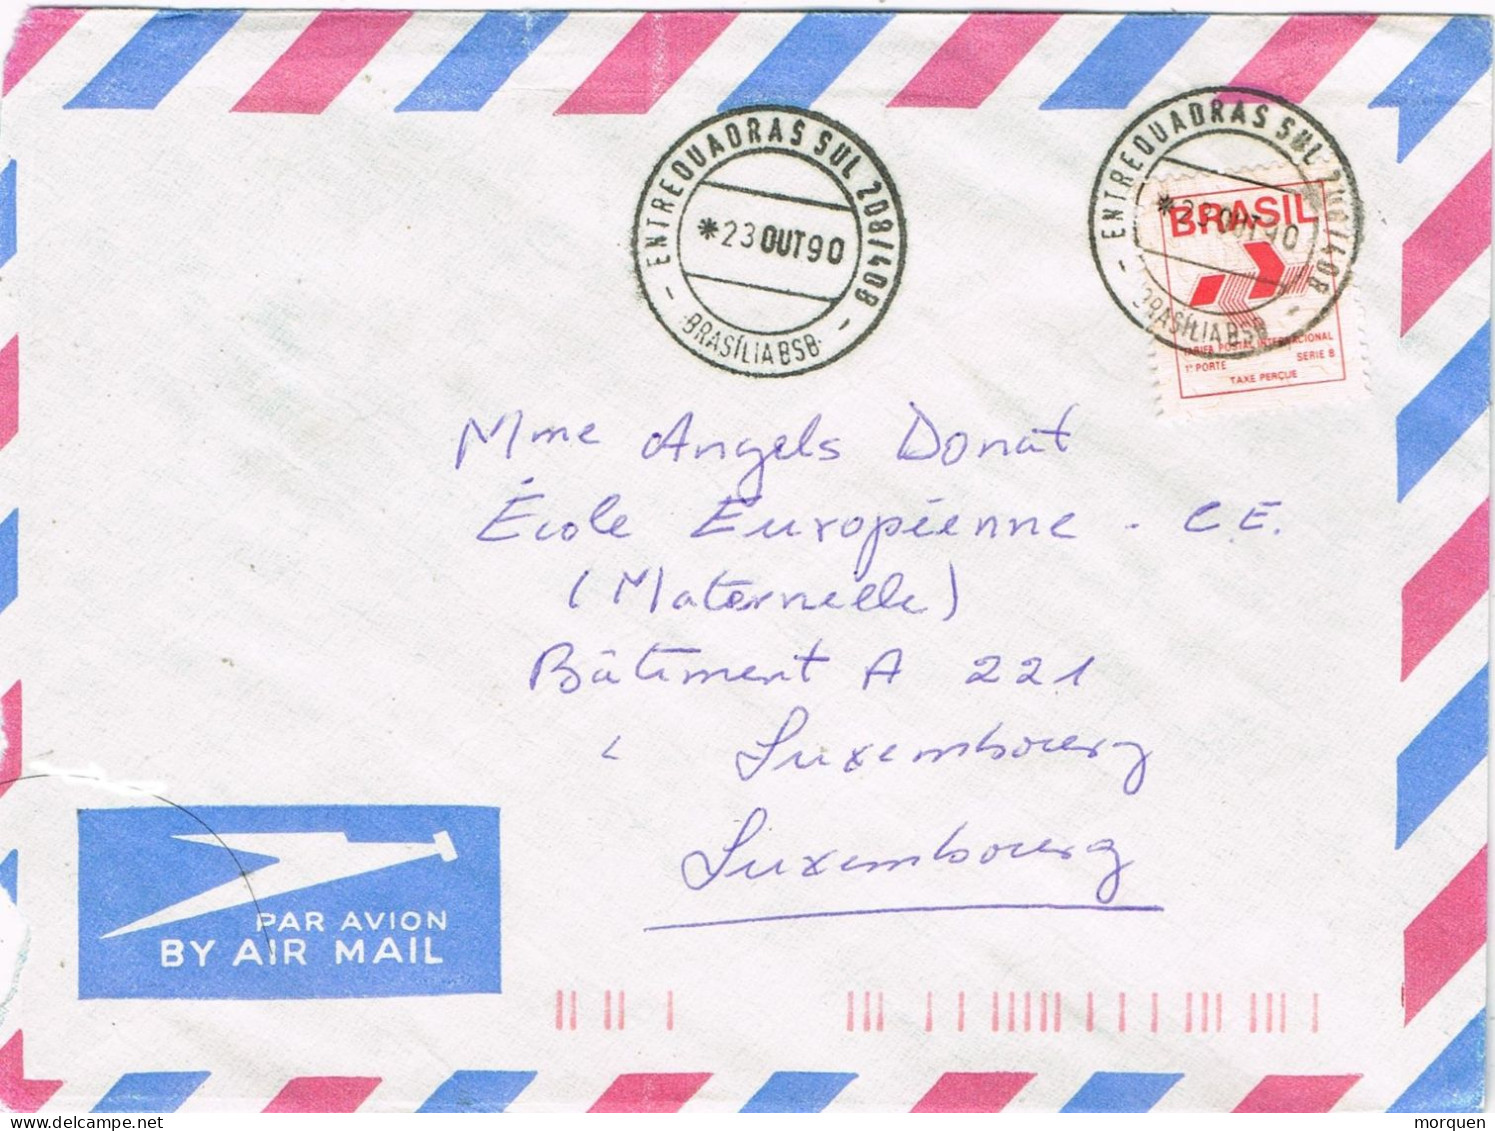 ENTREQUADRAS SUL 208/408
*23OUT90
BRASÍLIA BSB
ENTREQUADRAS SUL 208/408
*23OUT90
BRASÍLIA BSB
BRASIL
TARIFA POSTAL INTERNACIONAL
1º PORTE SERIE B
TAXE PERÇUE
Mme Angels Donat
École Européenne - C.E.
(Maternelle)
Bâtiment A 221
Luxembourg
Luxembourg
PAR AVION
BY AIR MAIL
morquen